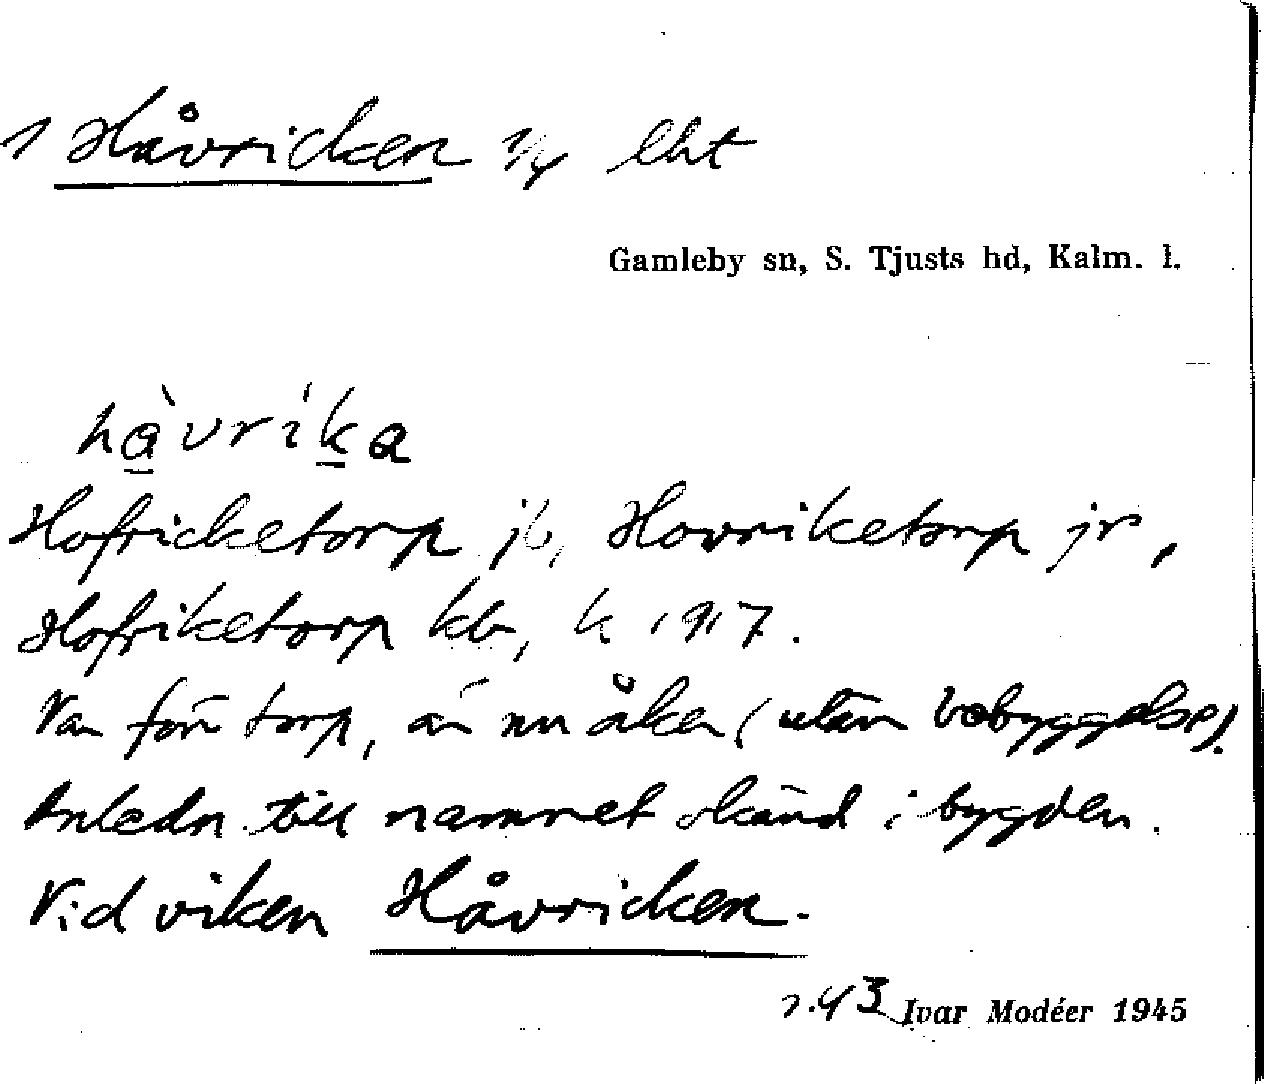 1 Håvricken 1/4 lht
Gamleby sn, S. Tjusts hd, Kalm. l.
hàvrika
Hofricketorp jb, Hovriketorp jr,
Hofriketorp kb, k 1917.
Var förr torp, är nu åker (utan bebyggelse).
Anledn till namnet okänd i bygden.
Vid viken Håvricken.
1.43 Ivar Modéer 1945